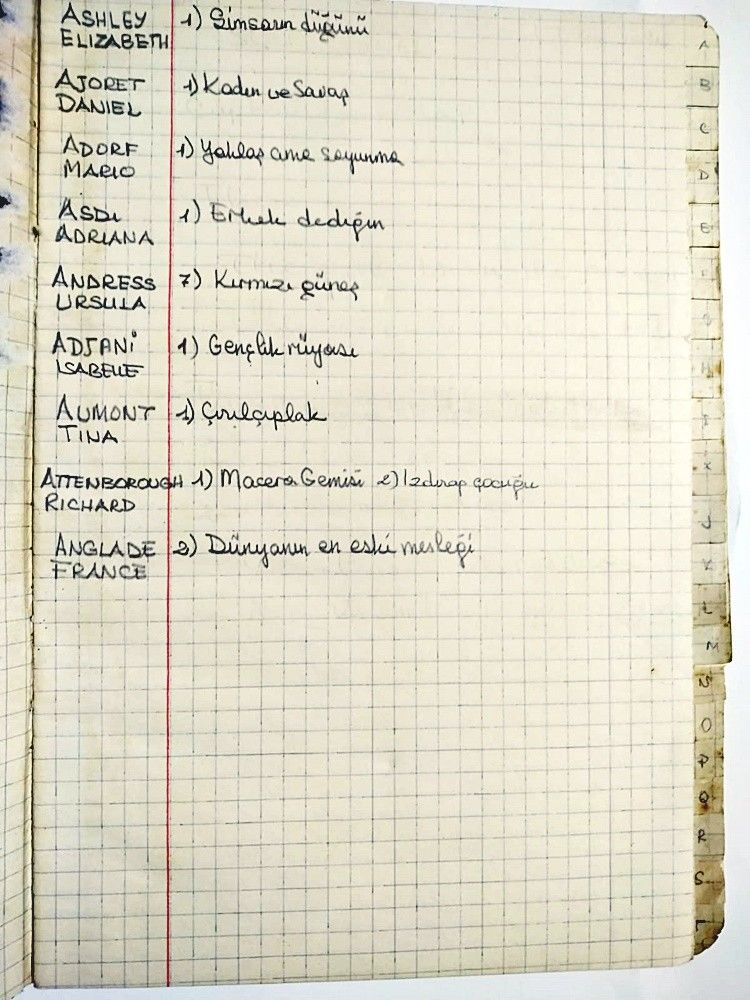 ASHLEY 1) Simsarın düğünü
ELIZABETH
AJORET 1) Kadın ve Savaş
DANIEL
ADORF 1) Yaklaş ama soyunma
MARIO
ASDi 1) Erkek dediğin
ADRIANA
ANDRESS 7) Kırmızı güneş
URSULA
ADJANi 1) Gençlik rüyası
ISABELLE
AUMONT 1) Çırılçıplak
TINA
ATTENBOROUGH 1) Macera Gemisi 2) Izdırap çocuğu
RICHARD
ANGLADE 2) Dünyanın en eski mesleği
FRANCE
A
B
C
D
E
F
G
H
I
K
J
K
L
M
N
O
P
Q
R
S